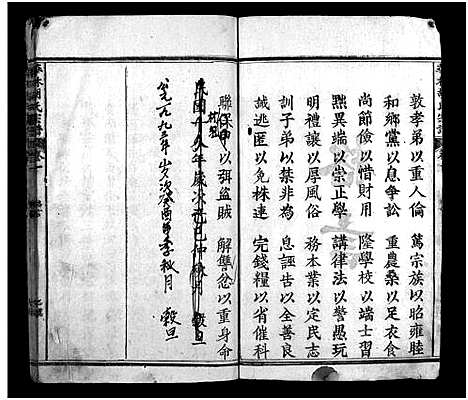 敦孝弟以重人倫　篤宗族以昭雍睦
和鄉黨以息爭訟　重農桑以足衣食
尚節儉以惜財用　隆學校以端士習
黜異端以崇正學　講律法以警愚玩
明禮讓以厚風俗　務本業以定民志
訓子弟以禁非為　息誣告以全善良
誡逃匿以免株連　完錢糧以省催科
聯保甲以弭盜賊　解讐忿以重身命
民國十八年歲次己巳仲秋月　穀旦
公元一九九三年岁次癸酉年季秋月　穀旦